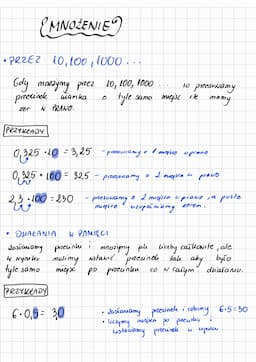 (MNOŻENIE)
• PRZEZ 10, 100, 1000 ...
Gdy mnożymy przez 10, 100, 1000 ... to przesuwamy
przecinek ułamka o tyle samo miejsc ile mamy
zer w PRAWO.
PRZYKŁADY
0,325 · 10 = 3,25 - przesuwamy o 1 miejsce w prawo
0,325 · 100 = 32,5 - przesuwamy o 2 miejsca w prawo
2,3 · 100 = 230 - przesuwamy o 2 miejsca w prawo, a puste
miejsce uzupełniamy zerem.
• DZIAŁANIA W PAMIĘCI
zasłaniamy przecinki i mnożymy jak liczby całkowite, ale
w wyniku musimy wstawić przecinek tak aby było
tyle samo miejsc po przecinku co w całym działaniu.
PRZYKŁADY
6 · 0,5 = 3,0
- zasłaniamy przecinek i robimy 6·5=30
- liczymy miejsca po przecinku i
wstawiamy przecinek w wyniku